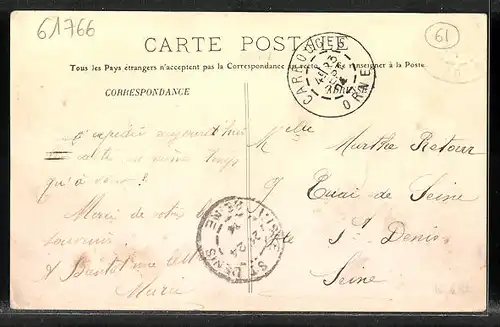 61766
61
CARTE POSTALE
Tous les Pays étrangers n'acceptent pas la Correspondance au recto. Se renseigner à la Poste
CARROUGES
ORNE
CORRESPONDANCE
J'expédie aujourd'hui
carte en même temps
qu'à
Merci de votre
souvenir
A Bientôt une lettre
Merci
ST DENIS
SEINE
24
Melle
Marthe Retour
9 Quai de Seine
St Denis
Seine